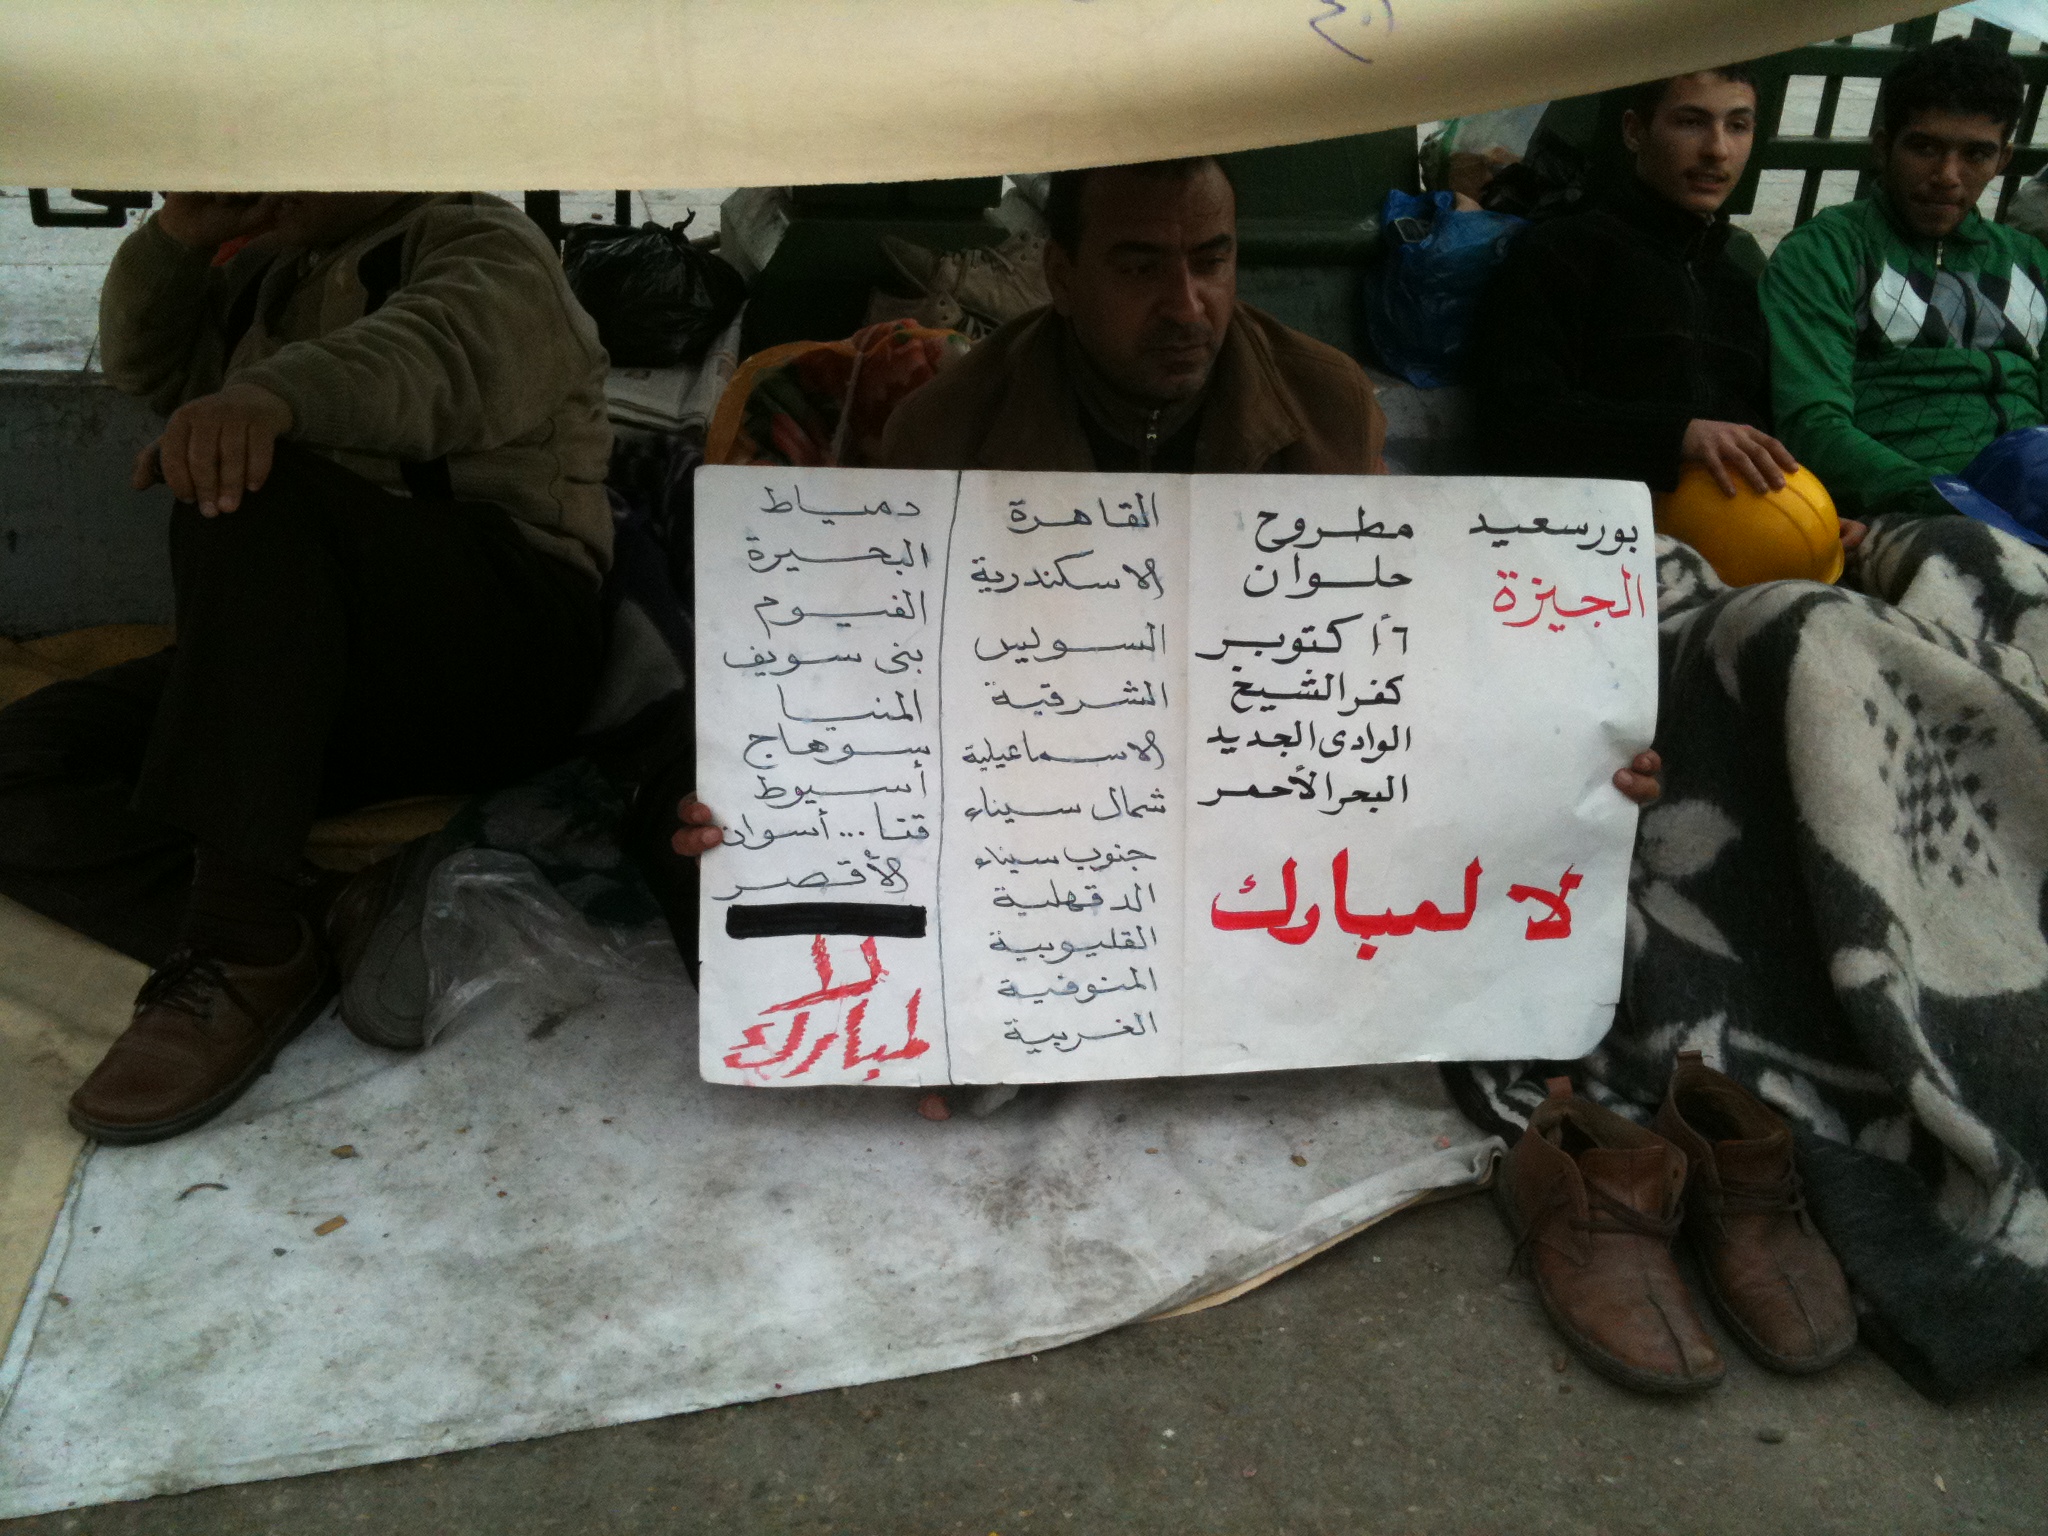 بورسعيد
الجيزة
مطروح
حلوان
٦ أكتوبر
كفر الشيخ
الوادى الجديد
البحر الأحمر
لا لمبارك
القاهرة
الاسكندرية
السويس
الشرقية
الاسماعيلية
شمال سيناء
جنوب سيناء
الدقهلية
القليوبية
المنوفية
الغربية
دمياط
البحيرة
الفيوم
بنى سويف
المنيا
سوهاج
أسيوط
قنا ... أسوان
الأقصر
لا
لمبارك